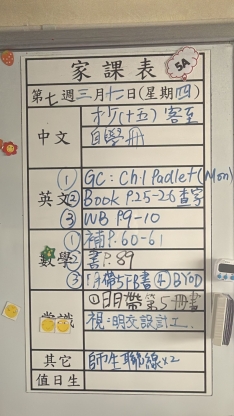 家課表
5A
第七週三月十七日(星期四)
中文
木(十五) 客至
自學冊
英文
① GC: Ch.1 Padlet (Mon)
② Book P.25-26 查字
③ WB P9-10
數學
① 補P.60-61
② 書P.89
③ 備5下B書 ④ BYOD
常識
①日日帶第5冊書
視:明交設計工
其它
師生聯線x2
值日生